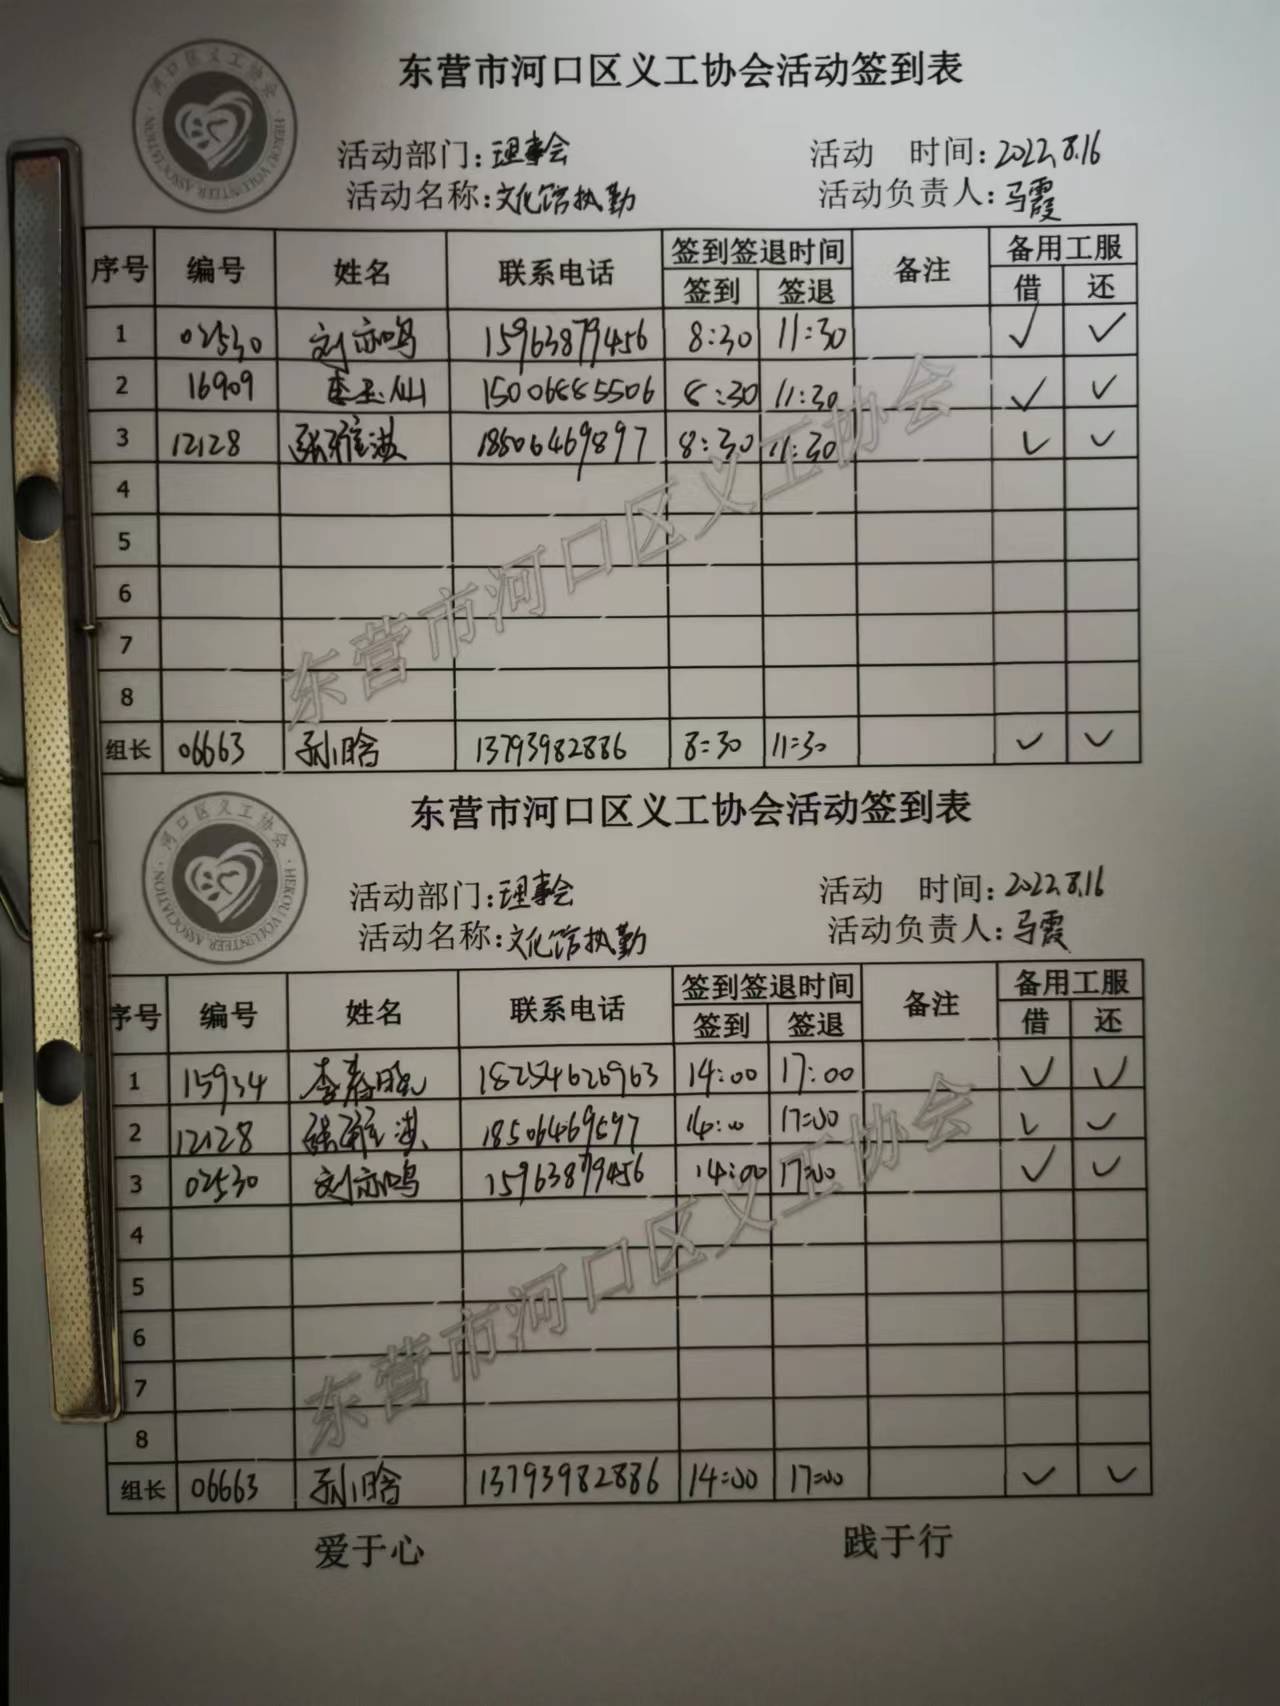 东营市河口区义工协会活动签到表
河口区义工协会
HEKOU VOLUNTEER ASSOCIATION
活动部门:理事会 活动 时间:2022.8.16
活动名称:文化馆执勤 活动负责人:马霞
序号 编号 姓名 联系电话 签到签退时间 备注 备用工服
签到 签退 借 还
1 02530 刘亦鸣 15963879456 8:30 11:30 ✓ ✓
2 16909 李玉仙 15006885506 8:30 11:30 ✓ ✓
3 12128 张雅洪 18506469897 8:30 11:30 ✓ ✓
4
5
6
7
8
组长 06663 孙晗 13793982886 8:30 11:30 ✓ ✓
东营市河口区义工协会
东营市河口区义工协会活动签到表
河口区义工协会
HEKOU VOLUNTEER ASSOCIATION
活动部门:理事会 活动 时间:2022.8.16
活动名称:文化馆执勤 活动负责人:马霞
序号 编号 姓名 联系电话 签到签退时间 备注 备用工服
签到 签退 借 还
1 15934 李春晓 18254626963 14:00 17:00 ✓ ✓
2 12128 张雅洪 18506469597 14:00 17:00 ✓ ✓
3 02530 刘亦鸣 15963879456 14:00 17:00 ✓ ✓
4
5
6
7
8
组长 06663 孙晗 13793982886 14:00 17:00 ✓ ✓
东营市河口区义工协会
爱于心 践于行